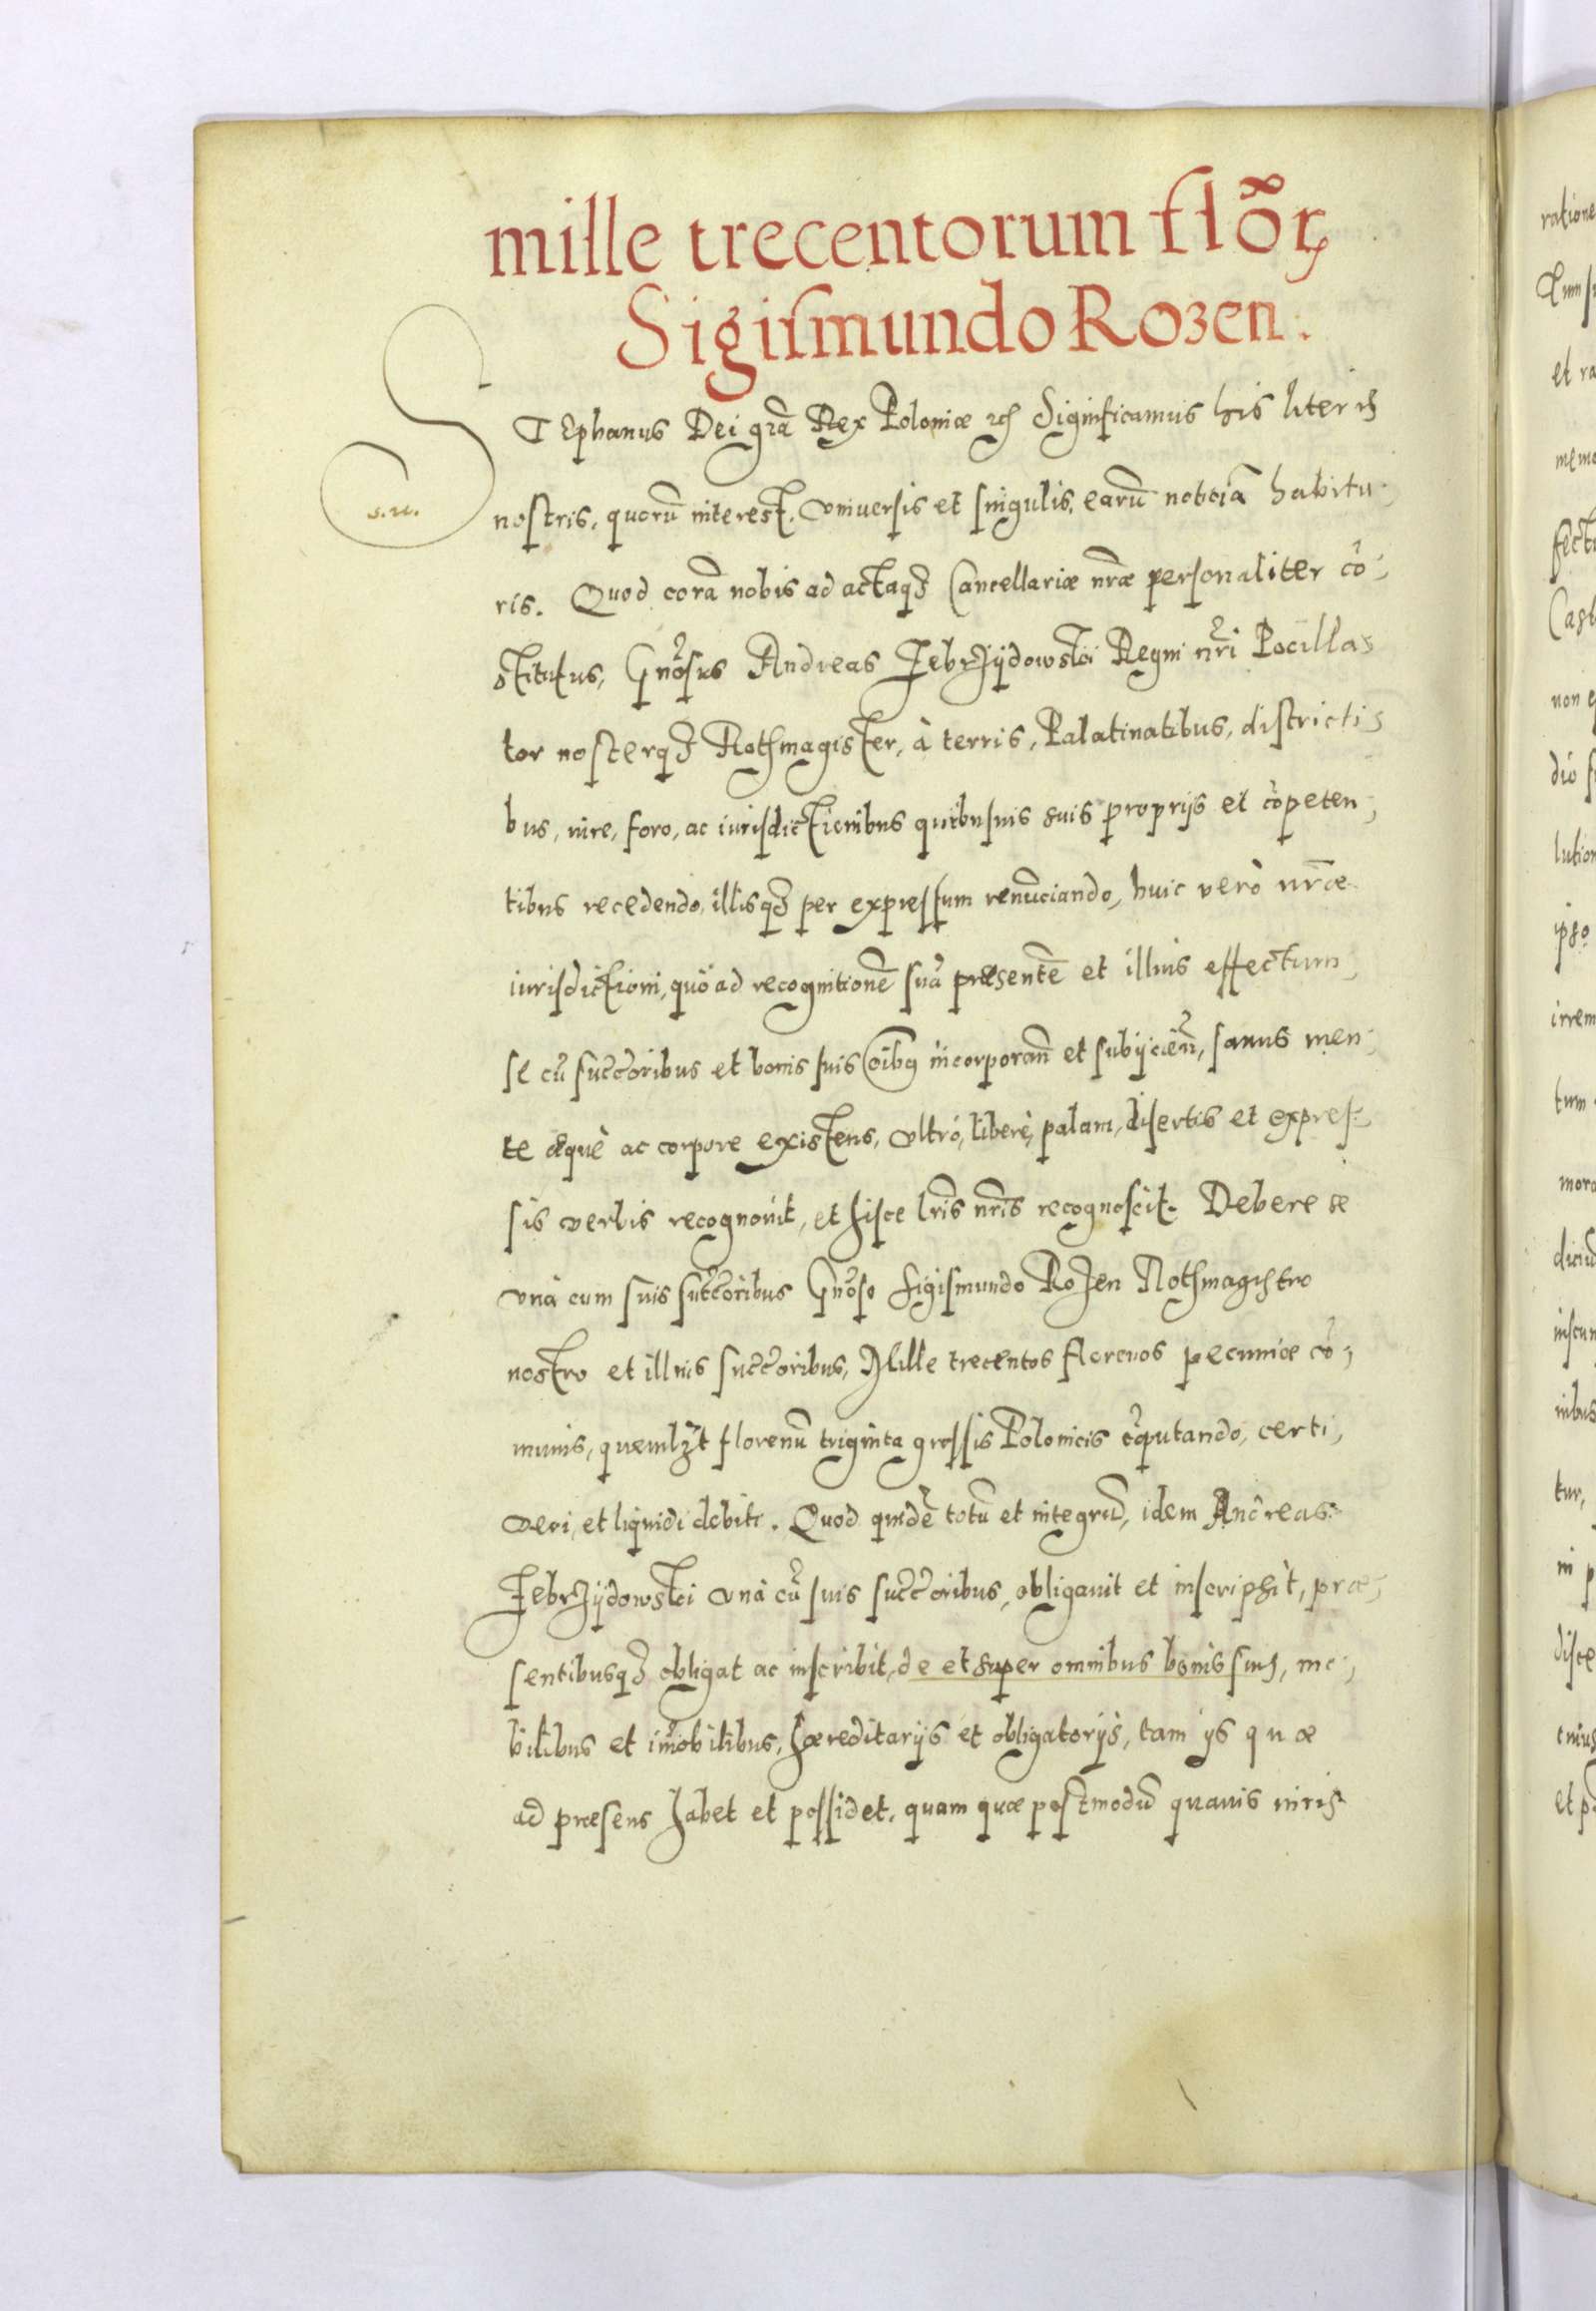 mille trecentorum flōꝝ
Sigismundo Rozen.
STEphanus Dei grã Rex Poloniæ ꝛc̃ Significamus his literis
nostris, quorũ interest, vniuersis et singulis, earũ notitiã habitu-
s. u.
ris. Quod corã nobis ad actaq3 Cancellariæ nr̃æ personaliter cõ-
stitutus, Gnõsus Andreas Zebrzÿdowski Regni nr̃i Pocilla-
tor nosterq3 Rothmagister, à terris, Palatinatibus, districti-
bus, iure, foro, ac iurisdictionibus quibusuis suis proprijs et cõpeten-
tibus recedendo, illisq3 per expressum renũciando, huic verò nr̃æ
iurisdictioni, quò ad recognitionẽ suã præsentẽ et illius effectum,
se cũ succ̃oribus et bonis suis õibꝯ incorporañ et subijcieñ, sanus men-
te æquè ac corpore existens, vltrò, liberè, palam, disertis et expres-
sis verbis recognouit, et hisce lr̃is nr̃is recognoscit. Debere se
vnà cum suis succ̃oribus Gnõso Sigismundo Rozen Rothmagistro
nostro et illius succ̃oribus, Mille trecentos florenos pecuniæ cõ-
munis, quemlꝫt florenũ triginta grossis Polonicis cõputando, certi,
veri, et liquidi debiti. Quod quidẽ totũ et integrũ, idem Andreas
Zebrzÿdowski vnà cũ suis succ̃oribus, obligauit et inscripsit, præ-
sentibusq3 obligat ac inscribit, de et super omnibus bonis suis, mo-
bilibus et im̃obilibus, hæreditarijs et obligatorijs, tam ijs quæ
ad præsens habet et possidet, quam quæ postmodũ quauis iuris